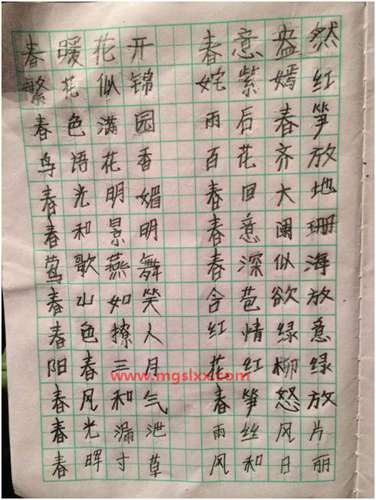 春暖花开 春意盎然
繁花似锦 姹紫嫣红
春色满园 雨后春笋
鸟语花香 百花齐放
春光明媚 春回大地
春和景明 春意阑珊
莺歌燕舞 春深似海
春山如笑 含苞欲放
春色撩人 红情绿意
阳春三月 花红柳绿
www.mgslxx.com
春风和气 春笋怒放
春光漏泄 雨丝风片
春晖寸草 风和日丽